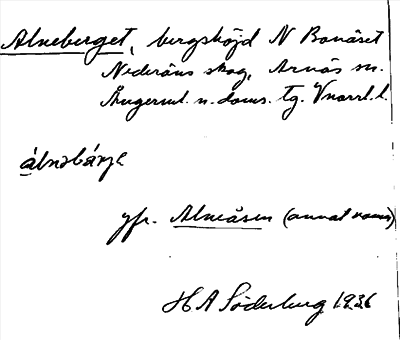 Alneberget, bergshöjd N Bonäset
Nederåns skog, Arnäs sn.
Ångerml. n. doms. tg. Vnorrl. l.
álnəbárjə
jfr. Alneåsen (annat namn)
H A Söderberg 1936